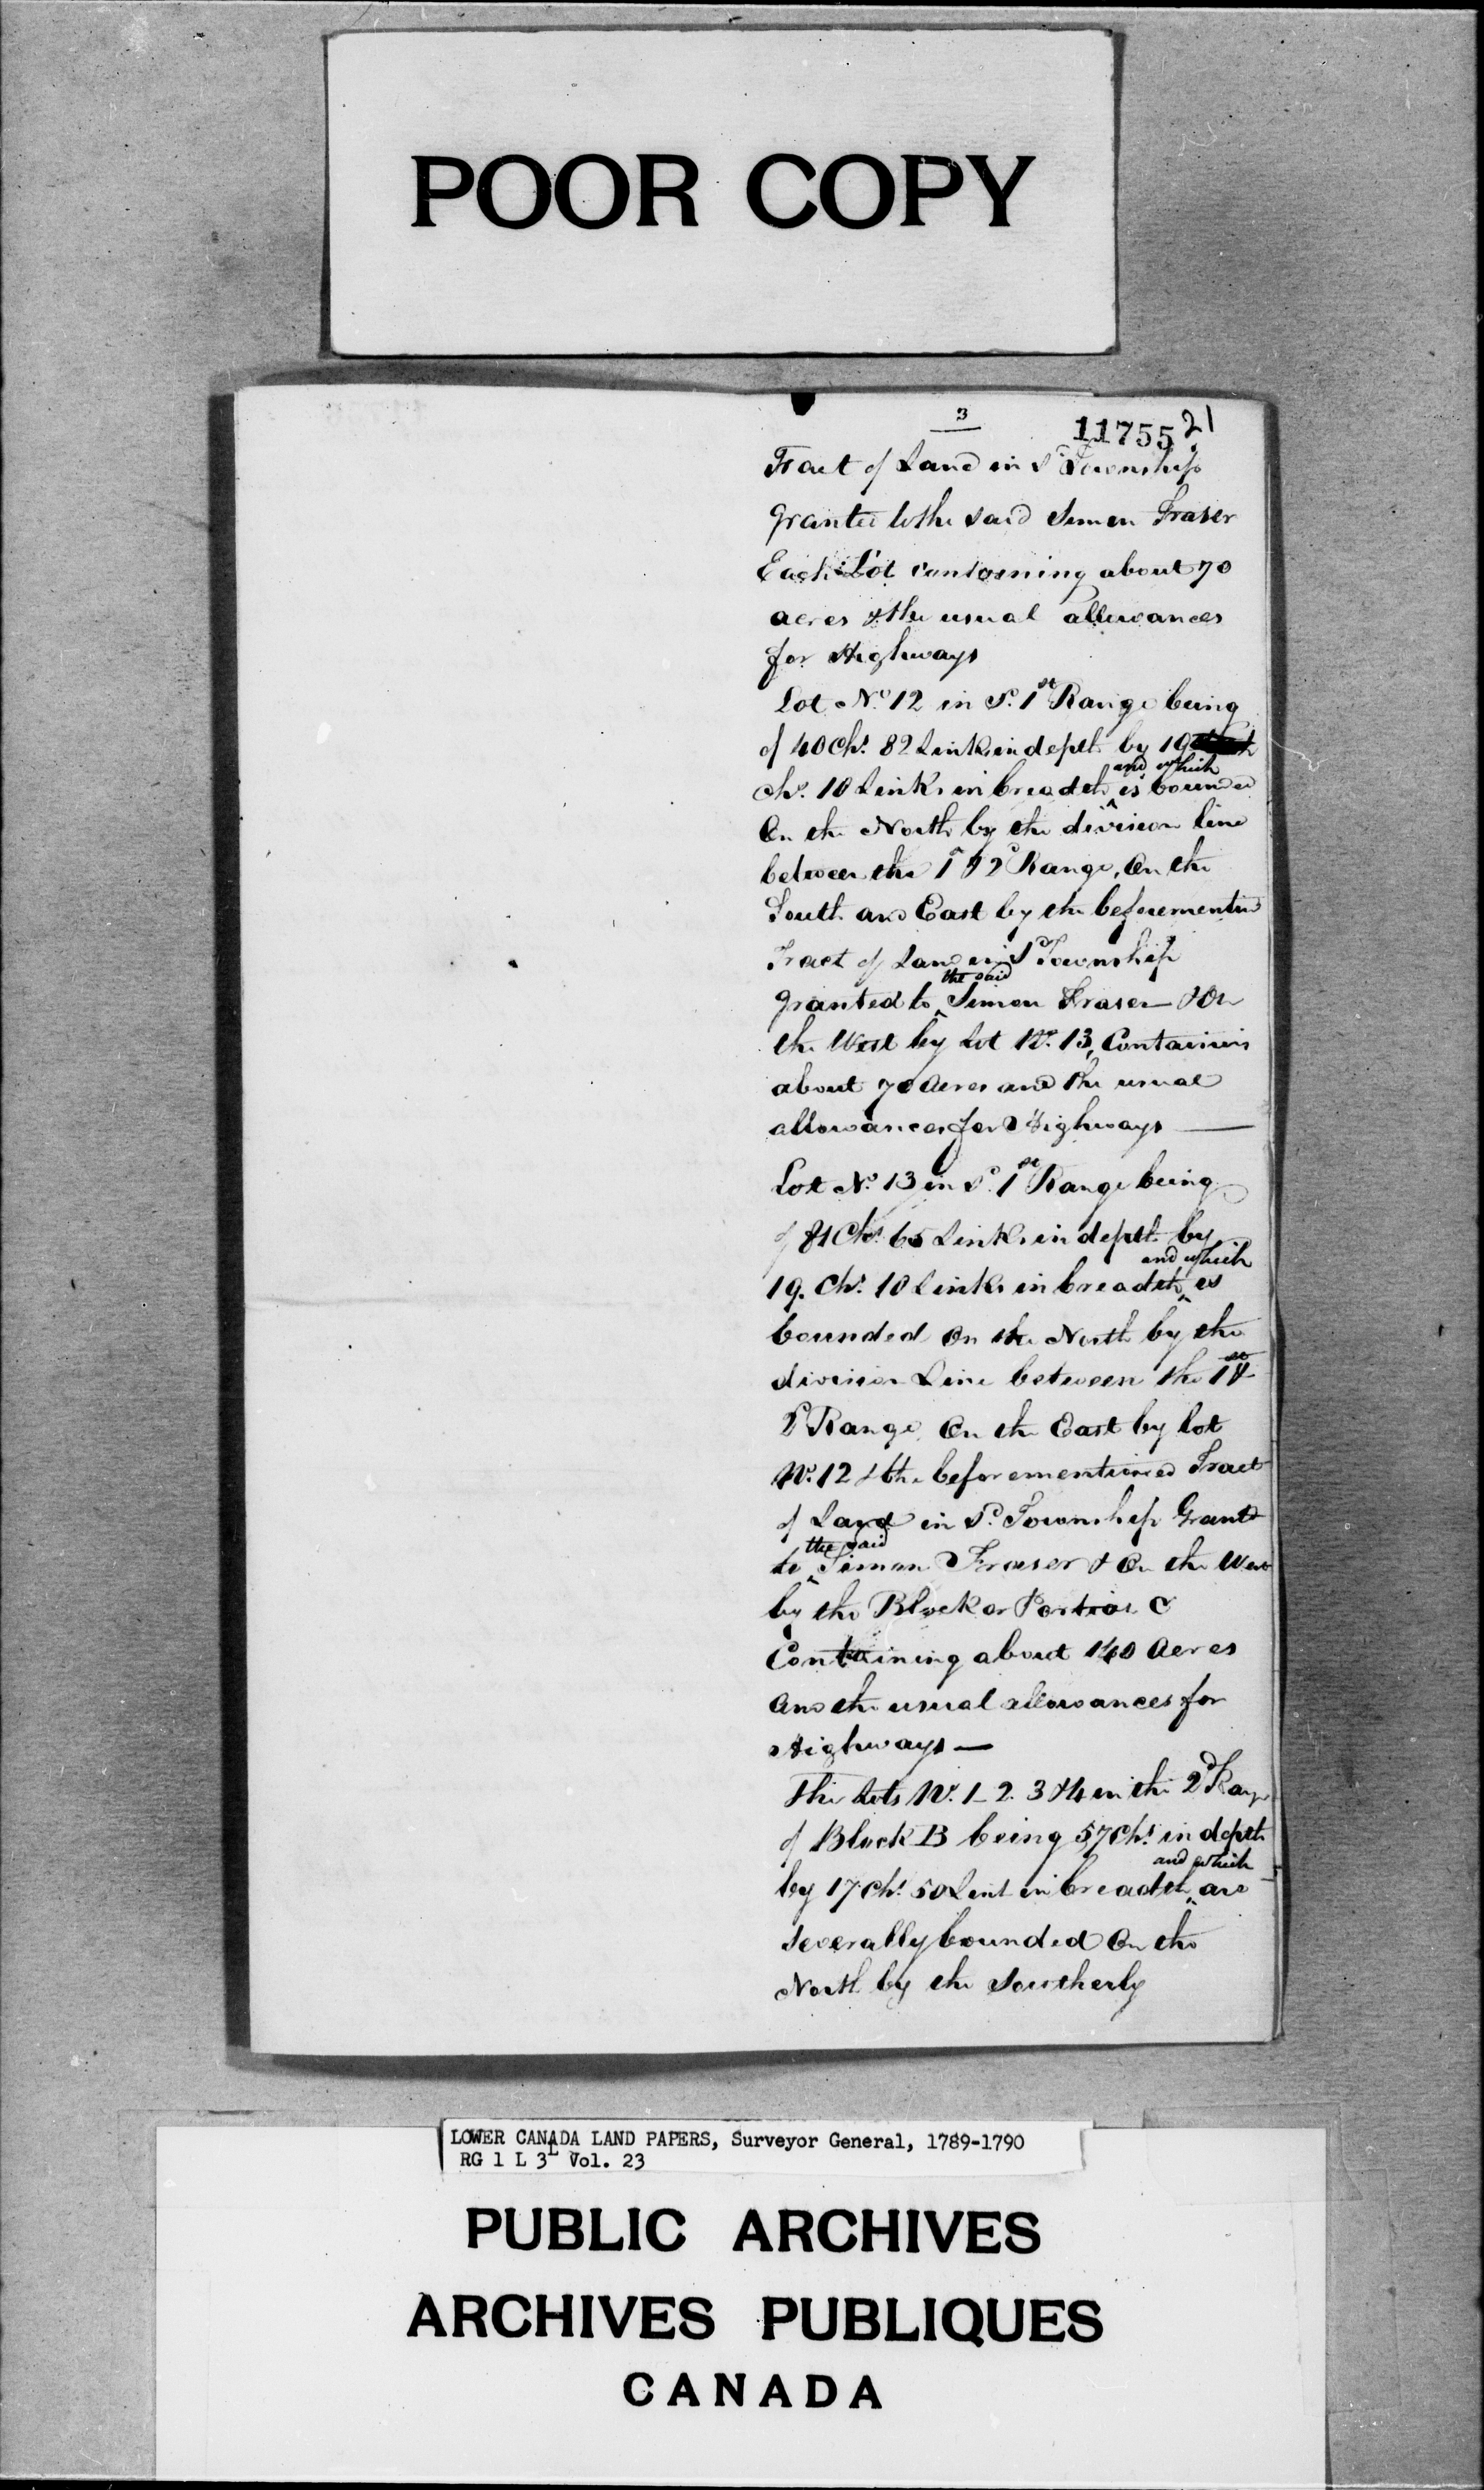 POOR COPY
3
11755 21
Tract of Land in Sd Township
Granted to the said Simon Fraser
Each Lot containing about 70
acres & the usual allowances
for Highways
Lot No. 12 in Sd. 1st Range being
of 40 Chs. 82 Links in depth by 19
and which
Chs. 10 Links in breadth ^ is bounded
On the North by the division line
between the 1st & 2d Range, On the
South and East by the beforementiond
Tract of Land in Sd Township
the said
granted to ^ Simon Fraser — & On
the West by Lot No. 13, Containing
about 70 Acres and the usual
allowances for Highways —
Lot No. 13 in Sd. 1st Range being
of 81 Chs. 65 Links in depth by
and which
19. Chs. 10 Links in breadth ^ is
bounded On the North by the
division Line between the 1st &
2d Range, On the East by Lot
No. 12 & the beforementioned Tract
of Land in Sd. Township Grantd
the said
to ^ Simon Fraser & On the West
by the Block or Portion C
Containing about 140 Acres
and the usual allowances for
Highways —
The Lots No. 1 - 2. 3 & 4 in the 2d Range
of Block B being 57 Chs. in depth
and which
by 17 Chs. 50 Links in breadth ^ are
Severally bounded On the
North by the Southerly
LOWER CANADA LAND PAPERS, Surveyor General, 1789-1790
RG 1 L 3L Vol. 23
PUBLIC ARCHIVES
ARCHIVES PUBLIQUES
CANADA